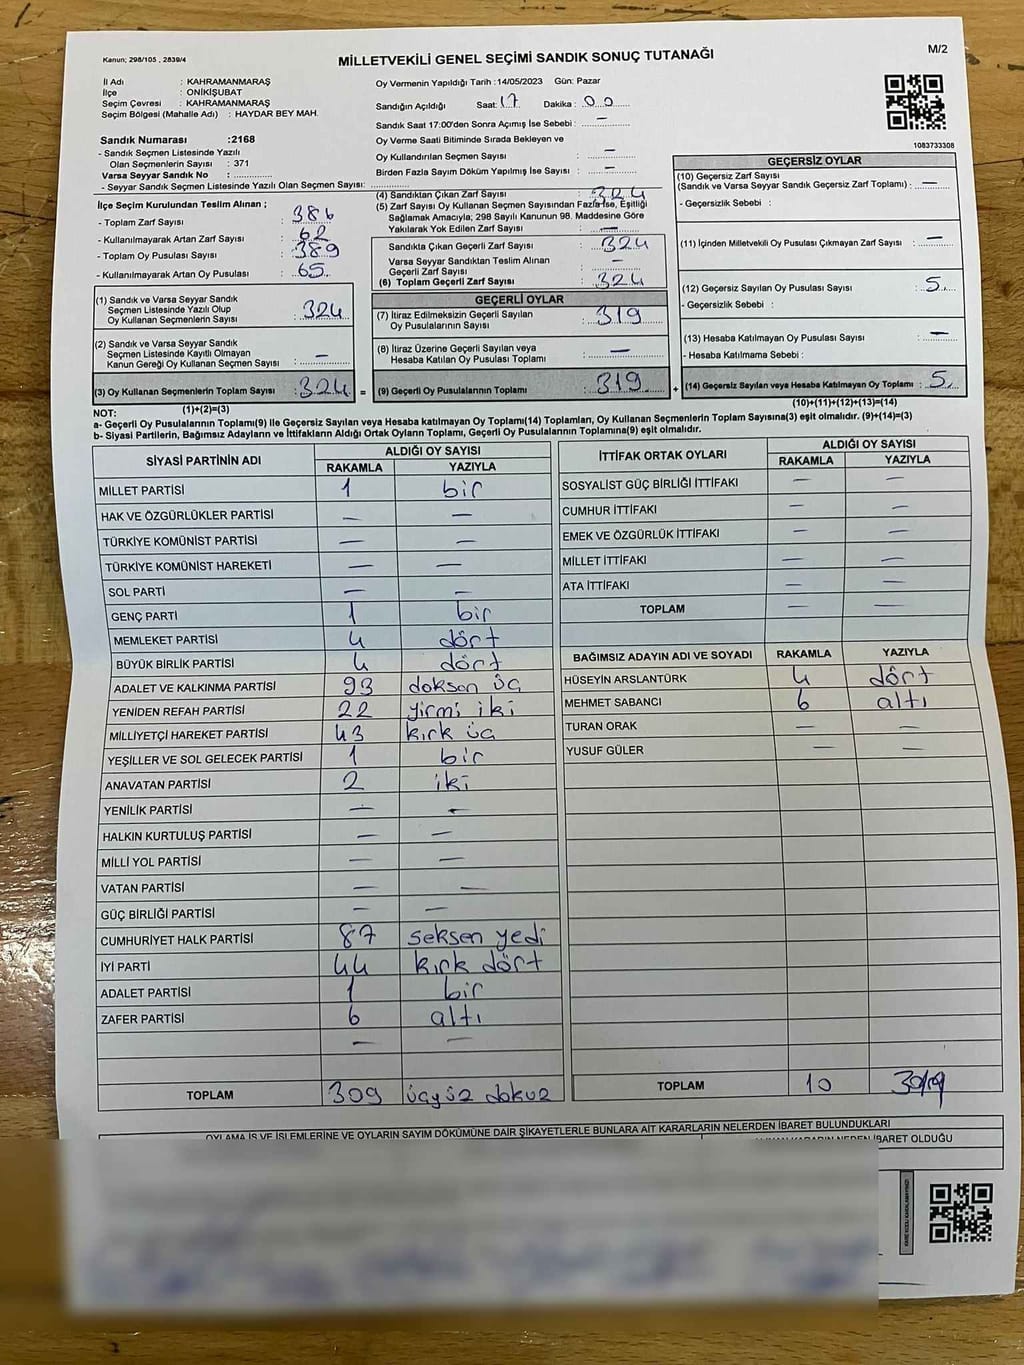 Kanun; 298/105 , 2839/4
MİLLETVEKİLİ GENEL SEÇİMİ SANDIK SONUÇ TUTANAĞI
M/2
İl Adı : KAHRAMANMARAŞ
İlçe : ONİKİŞUBAT
Seçim Çevresi : KAHRAMANMARAŞ
Seçim Bölgesi (Mahalle Adı) : HAYDAR BEY MAH.
Sandık Numarası :2168
- Sandık Seçmen Listesinde Yazılı
Olan Seçmenlerin Sayısı : 371
Varsa Seyyar Sandık No : ..............
- Seyyar Sandık Seçmen Listesinde Yazılı Olan Seçmen Sayısı: ..............
Oy Vermenin Yapıldığı Tarih :14/05/2023 Gün: Pazar
Sandığın Açıldığı Saat: 17 Dakika : 00
Sandık Saat 17:00'den Sonra Açımış İse Sebebi : —
Oy Verme Saati Bitiminde Sırada Bekleyen ve
Oy Kullandırılan Seçmen Sayısı : —
Birden Fazla Sayım Döküm Yapılmış İse Sayısı : —
1083733308
İlçe Seçim Kurulundan Teslim Alınan ;
- Toplam Zarf Sayısı : 386
- Kullanılmayarak Artan Zarf Sayısı : 62
- Toplam Oy Pusulası Sayısı : 389
- Kullanılmayarak Artan Oy Pusulası : 65
(1) Sandık ve Varsa Seyyar Sandık
Seçmen Listesinde Yazılı Olup
Oy Kullanan Seçmenlerin Sayısı : 324
(2) Sandık ve Varsa Seyyar Sandık
Seçmen Listesinde Kayıtlı Olmayan
Kanun Gereği Oy Kullanan Seçmen Sayısı : —
(3) Oy Kullanan Seçmenlerin Toplam Sayısı : 324 =
(1)+(2)=(3)
(4) Sandıktan Çıkan Zarf Sayısı : 324
(5) Zarf Sayısı Oy Kullanan Seçmen Sayısından Fazla İse, Eşitliği
Sağlamak Amacıyla; 298 Sayılı Kanunun 98. Maddesine Göre
Yakılarak Yok Edilen Zarf Sayısı : —
Sandıkta Çıkan Geçerli Zarf Sayısı : 324
Varsa Seyyar Sandıktan Teslim Alınan
Geçerli Zarf Sayısı : —
(6) Toplam Geçerli Zarf Sayısı : 324
GEÇERLİ OYLAR
(7) İtiraz Edilmeksizin Geçerli Sayılan
Oy Pusulalarının Sayısı : 319
(8) İtiraz Üzerine Geçerli Sayılan veya
Hesaba Katılan Oy Pusulası Toplamı : —
(9) Geçerli Oy Pusulalarının Toplamı : 319 +
GEÇERSİZ OYLAR
(10) Geçersiz Zarf Sayısı
(Sandık ve Varsa Seyyar Sandık Geçersiz Zarf Toplamı) : —
- Geçersizlik Sebebi :
(11) İçinden Milletvekili Oy Pusulası Çıkmayan Zarf Sayısı : —
(12) Geçersiz Sayılan Oy Pusulası Sayısı : 5
- Geçersizlik Sebebi :
(13) Hesaba Katılmayan Oy Pusulası Sayısı : —
- Hesaba Katılmama Sebebi :
(14) Geçersiz Sayılan veya Hesaba Katılmayan Oy Toplamı : 5
(10)+(11)+(12)+(13)=(14)
NOT:
a- Geçerli Oy Pusulalarının Toplamı(9) İle Geçersiz Sayılan veya Hesaba katılmayan Oy Toplamı(14) Toplamları, Oy Kullanan Seçmenlerin Toplam Sayısına(3) eşit olmalıdır. (9)+(14)=(3)
b- Siyasi Partilerin, Bağımsız Adayların ve İttifakların Aldığı Ortak Oyların Toplamı, Geçerli Oy Pusulalarının Toplamına(9) eşit olmalıdır.
SİYASİ PARTİNİN ADI ALDIĞI OY SAYISI
RAKAMLA YAZIYLA
MİLLET PARTİSİ 1 bir
HAK VE ÖZGÜRLÜKLER PARTİSİ — —
TÜRKİYE KOMÜNİST PARTİSİ — —
TÜRKİYE KOMÜNİST HAREKETİ — —
SOL PARTİ — —
GENÇ PARTİ 1 bir
MEMLEKET PARTİSİ 4 dört
BÜYÜK BİRLİK PARTİSİ 4 dört
ADALET VE KALKINMA PARTİSİ 93 doksan üç
YENİDEN REFAH PARTİSİ 22 yirmi iki
MİLLİYETÇİ HAREKET PARTİSİ 43 kırk üç
YEŞİLLER VE SOL GELECEK PARTİSİ 1 bir
ANAVATAN PARTİSİ 2 iki
YENİLİK PARTİSİ — —
HALKIN KURTULUŞ PARTİSİ — —
MİLLİ YOL PARTİSİ — —
VATAN PARTİSİ — —
GÜÇ BİRLİĞİ PARTİSİ — —
CUMHURİYET HALK PARTİSİ 87 seksen yedi
İYİ PARTİ 44 kırk dört
ADALET PARTİSİ 1 bir
ZAFER PARTİSİ 6 altı
— —
TOPLAM 309 üçyüz dokuz
İTTİFAK ORTAK OYLARI ALDIĞI OY SAYISI
RAKAMLA YAZIYLA
SOSYALİST GÜÇ BİRLİĞİ İTTİFAKI — —
CUMHUR İTTİFAKI — —
EMEK VE ÖZGÜRLÜK İTTİFAKI — —
MİLLET İTTİFAKI — —
ATA İTTİFAKI — —
TOPLAM — —
BAĞIMSIZ ADAYIN ADI VE SOYADI RAKAMLA YAZIYLA
HÜSEYİN ARSLANTÜRK 4 dört
MEHMET SABANCI 6 altı
TURAN ORAK — —
YUSUF GÜLER — —
TOPLAM 10
OYLAMA İŞ VE İŞLEMLERİNE VE OYLARIN SAYIM DÖKÜMÜNE DAİR ŞİKAYETLERLE BUNLARA AİT KARARLARIN NELERDEN İBARET BULUNDUKLARI
KARARIN NEDEN İBARET OLDUĞU